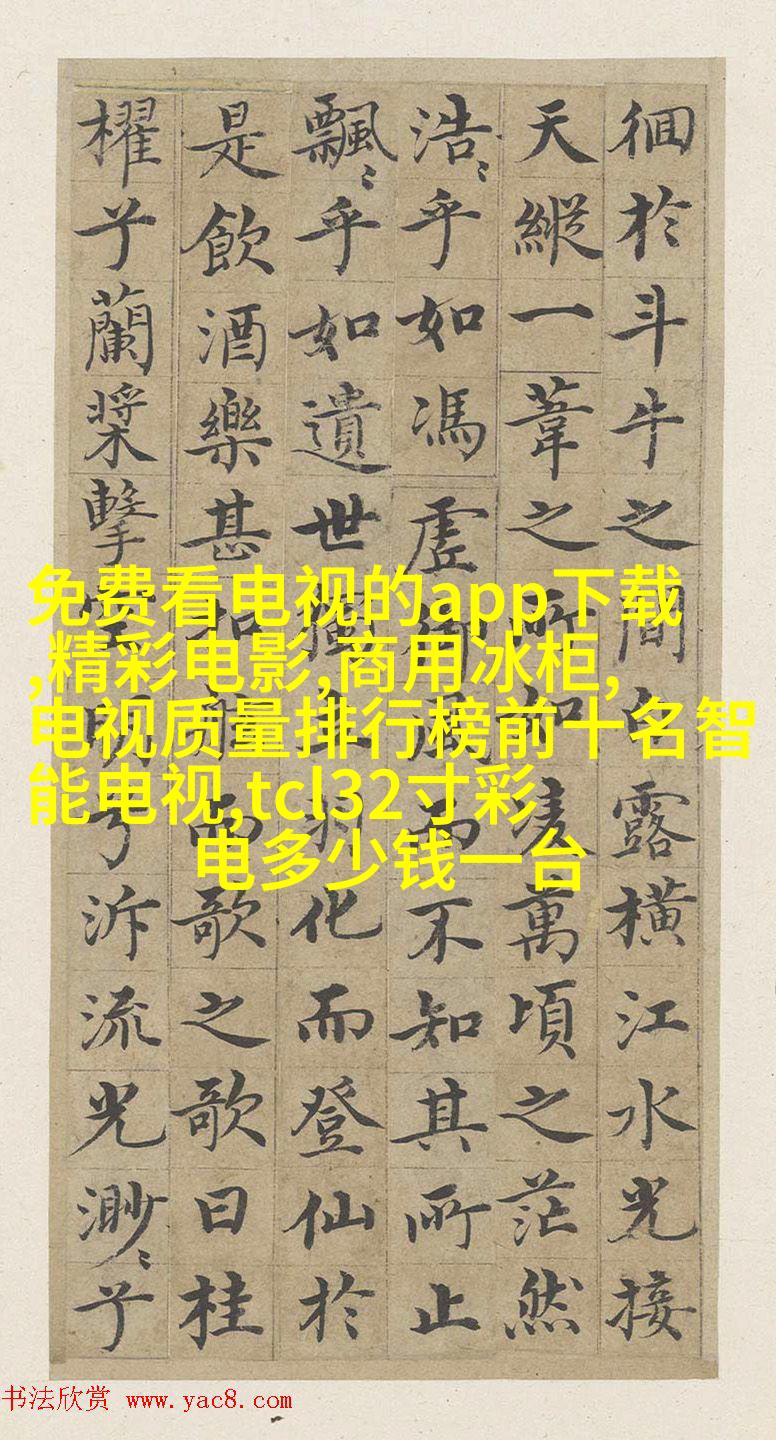 徊於斗牛之間白露橫江水光接
天縱一葦之所如凌萬頃之茫然
浩〻乎如馮虛御風而不知其所止
飄〻乎如遺世獨立羽化而登仙於
是飲酒樂甚扣舷而歌之歌曰桂
櫂兮蘭槳擊空明兮泝流光渺〻兮
免费看电视的app下载
,精彩电影,商用冰柜,
电视质量排行榜前十名智
能电视,tcl32寸彩
电多少钱一台
书法欣赏 www.yac8.com